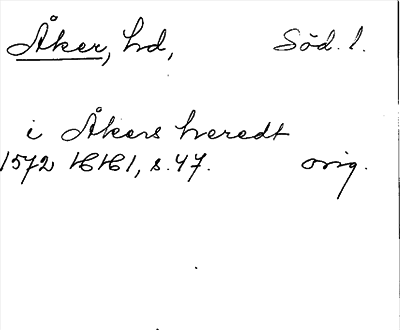 Åker, hd, Söd. l.
i Åkers heredt
1572 HH1, s. 47. orig.